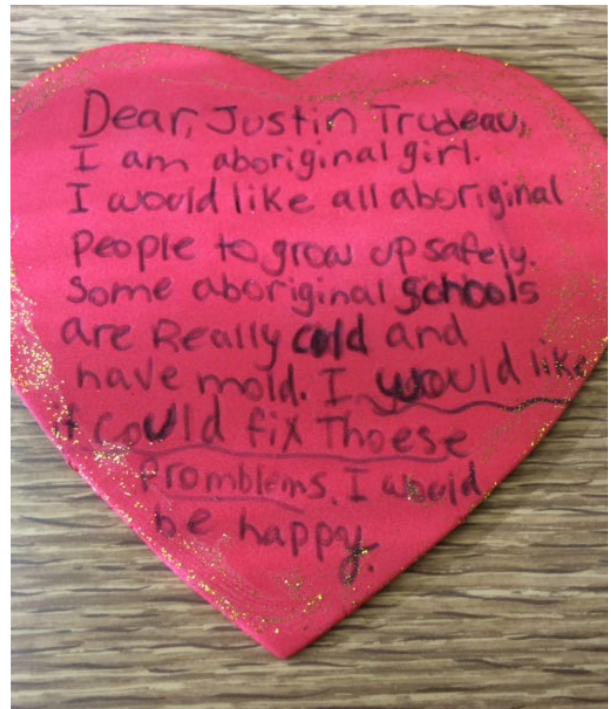 Dear, Justin Trudeau,
I am aboriginal girl.
I would like all aboriginal
People to grow up safely.
Some aboriginal schools
are Really cold and
have mold. I would like
could fix Thoese
Promblems. I would
be happy.